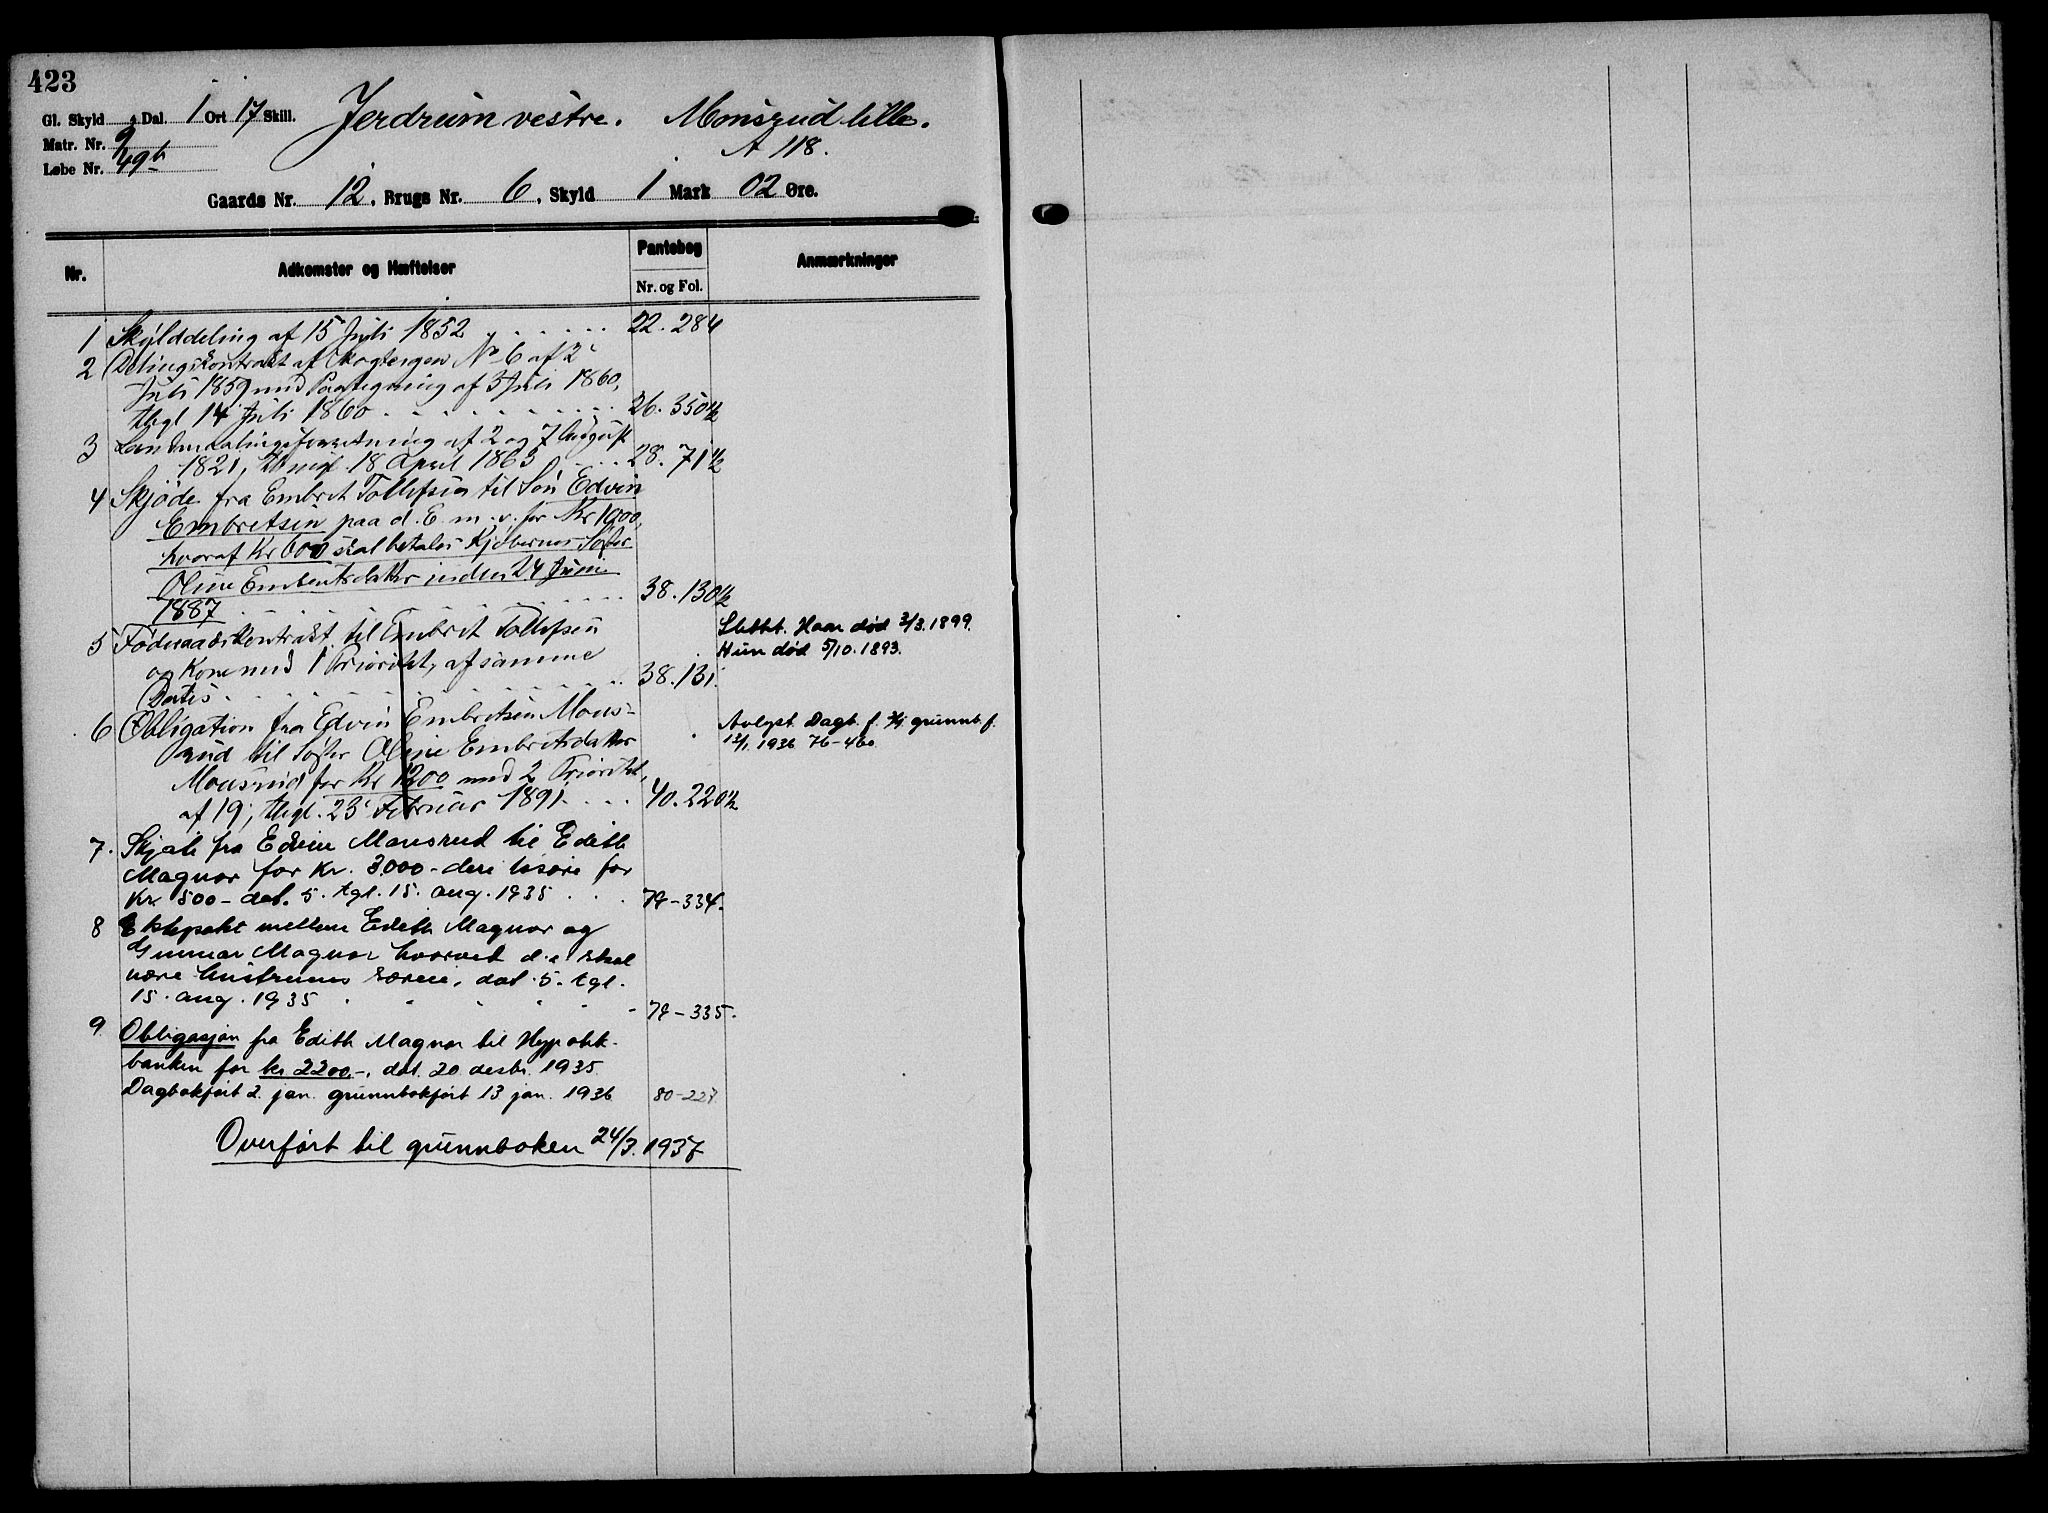 423
Gl. Skyld " Dal. 1 Ort 17 Skill. Jerdrum vestre. Monsrud lille.
Matr. Nr. 9 A 118.
Løbe Nr. 49b
Gaards Nr. 12, Brugs Nr. 6, Skyld 1 Mark 02 Øre.
Nr. Adkomster og Hæftelser Pantebog Nr. og Fol. Anmærkninger
1 Skylddeling af 15 Juli 1852 22. 284
2 Delingskontrakt af Skogteigen No 6 af 2
Juli 1859 med Paategning af 3 Juli 1860,
thgl 14 Juli 1860 26. 350½
3 af 2 og 7 August
1821, thingl. 18 April 1863 28. 71½
4 Skjøde fra Embret Tollefsen til Søn Edvin
Embretsen paa d. E. m. v. for Kr 1000,
hvoraf Kr 600 skal betales Kjøberens Søster
Oline Embretsdatter inden 24 Juni
1887 38. 130½
5 Føderaadskontrakt til Embret Tollefsen Slettet. Han død 3/3. 1899.
og Kone med 1 Prioritet, af samme Hun død 5/10. 1893.
Datis 38. 131.
6 Obligation fra Edvin Embretsen Mons- Avlyst. Dagb. f. 2/1 grunnb. f.
rud til Søster Oline Embretsdatter 13/1. 1936 76-460
Monsrud for Kr 1200 med 2 Prioritet,
af 19, thgl. 23 Februar 1891. 40. 220½
7. Skjøte fra Edvin Monsrud til Edith
Magnor for kr. 3.000- derav løsøre for
kr 500- dat. 5. tgl. 15. aug. 1935 79-334.
8 Ektepakt mellem Edith Magnor og
Gunnar Magnor hvorved d. e. skal
være hustruens særeie, dat. 5. tgl.
15. aug. 1935 79-335.
9. Obligasjon fra Edith Magnor til Hypotek-
banken for kr 2200.-, dat. 20. desbr. 1935.
Dagbokført 2. jan. grunnbokført 13 jan. 1936 80-227.
Overført til grunnboken 24/3. 1937